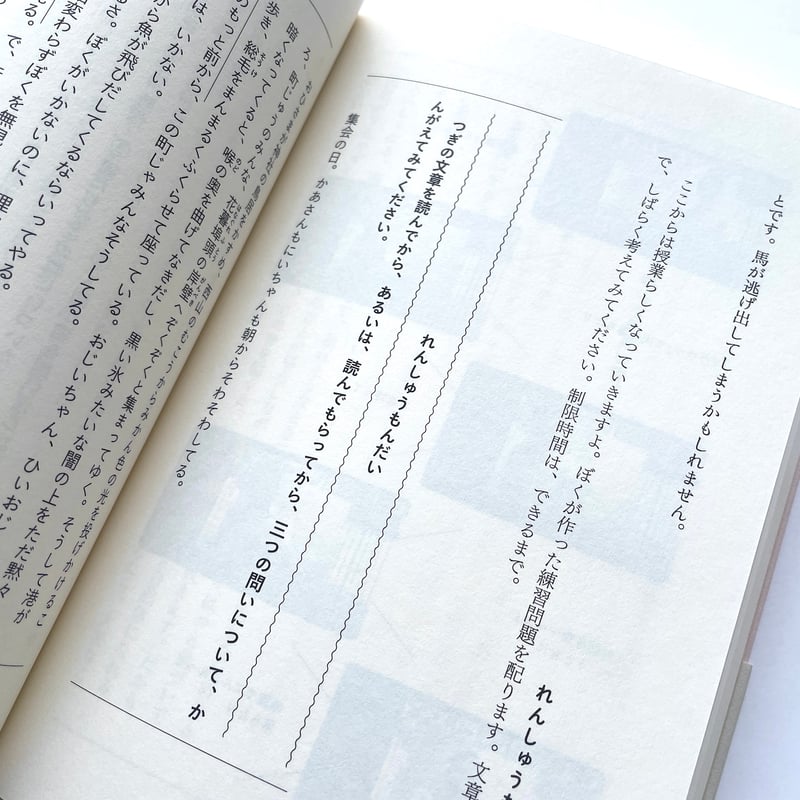 とです。馬が逃げ出してしまうかもしれません。
ここからは授業らしくなっていきますよ。ぼくが作った練習問題を配ります。文章
で、しばらく考えてみてください。制限時間は、できるまで。
れんしゅうも
れんしゅうもんだい
つぎの文章を読んでから、あるいは、読んでもらってから、三つの問いについて、か
んがえてみてください。
集会の日。かあさんもにいちゃんも朝からそわそわしてる。
西山のむこうからみかん色の光を投げかけるこ
暗くなってくると、町じゅうのみんな、花暮埠頭の岸壁へぞくぞくと集まってゆく。そうして港が
歩き、総毛をまんまるくふくらせて座っている。黒い氷みたいな闇の上をただ黙々
のもっと前から、喉の奥を曲げてなきだし、
は、いかない。この町じゃみんなそうしてる。おじいちゃん、ひいおじ
から魚が飛びだしてくるならいってやる。
るさ。ぼくがいかないのに、理
変わらずぼくを無視
る。で、